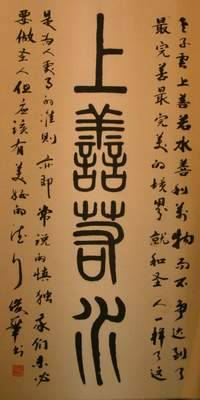 老子云上善若水善利万物而不争达到了
最完善最完美的境界就和圣人一样了这
上譱若水
是为人处事的准则亦即常说的慎独我们未必
要做圣人但应该有美好的德行